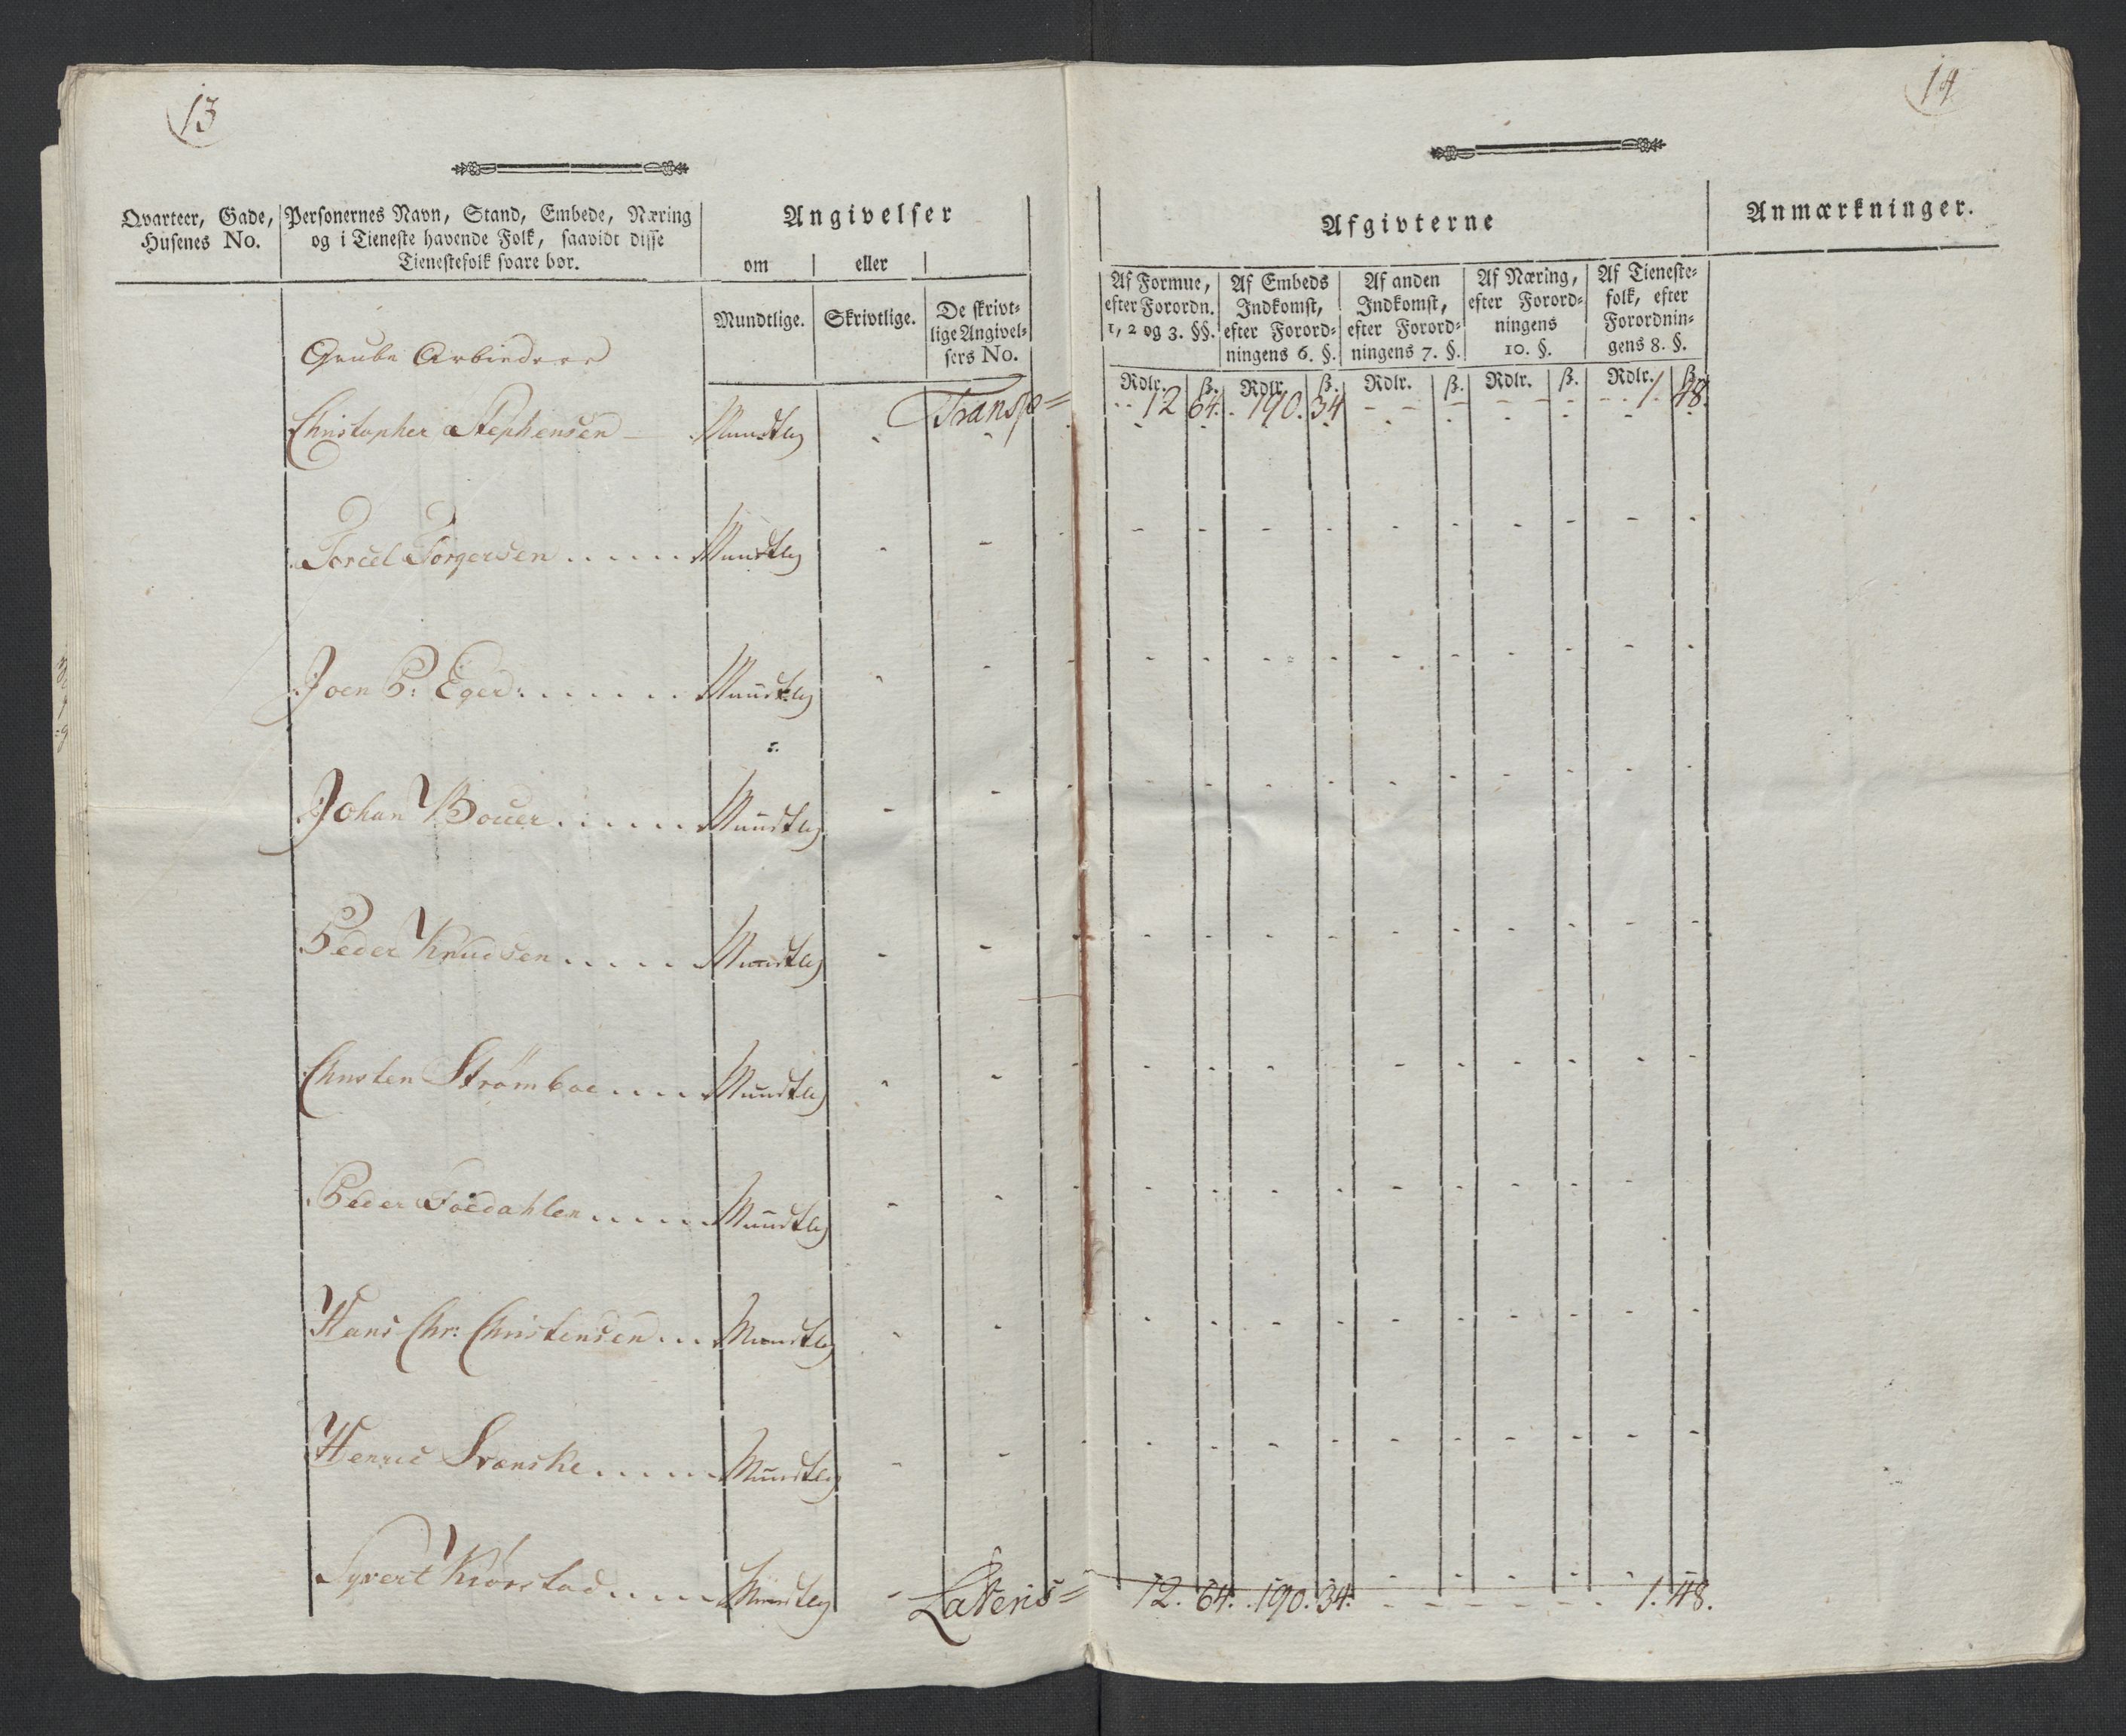 13
Qvarteer, Gade, Husenes No.
Personernes Navn, Stand, Embede, Næring
og i Tieneste havende Folk, saavidt disse
Tienestefolk svare bør.
Angivelser
om | eller
Mundtlige.
Skrivtlige.
De skrivt-
lige Angivel-
sers No.
Grube Arbiedere
Transp=
Christopher Stephensen — Mundtlig - -
Torcel Torgersen ..... Mundtlig - -
Joen P: Eger: ...... Mundtlig - -
Johan Bouer ...... Mundtlig - -
Peder Knudsen ..... Mundtlig - -
Christen Strømboe .... Mundtlig - -
Peder Foedahlen ..... Mundtlig - -
Hans Chr: Christensen ... Mundtlig - -
Henric Svenske ..... Mundtlig - -
Syvert Kiørstad ..... Mundtlig -
Lateris=
14
Afgivterne
Anmærkninger.
Af Formue,
efter Forordn.
1, 2 og 3. §§.
Af Embeds
Indkomst,
efter Forord-
ningens 6. §.
Af anden
Indkomst,
efter Forord-
ningens 7. §.
Af Næring,
efter Forord-
ningens
10. §.
Af Tieneste-
folk, efter
Forordnin-
gens 8. §.
Rdlr. | ß. | Rdlr. | ß. | Rdlr. | ß. | Rdlr. | ß. | Rdlr. | ß.
12 64. 190. 34 - - - - - - 1. 48.
12. 64. 190. 34. - - - - - - 1. 48.